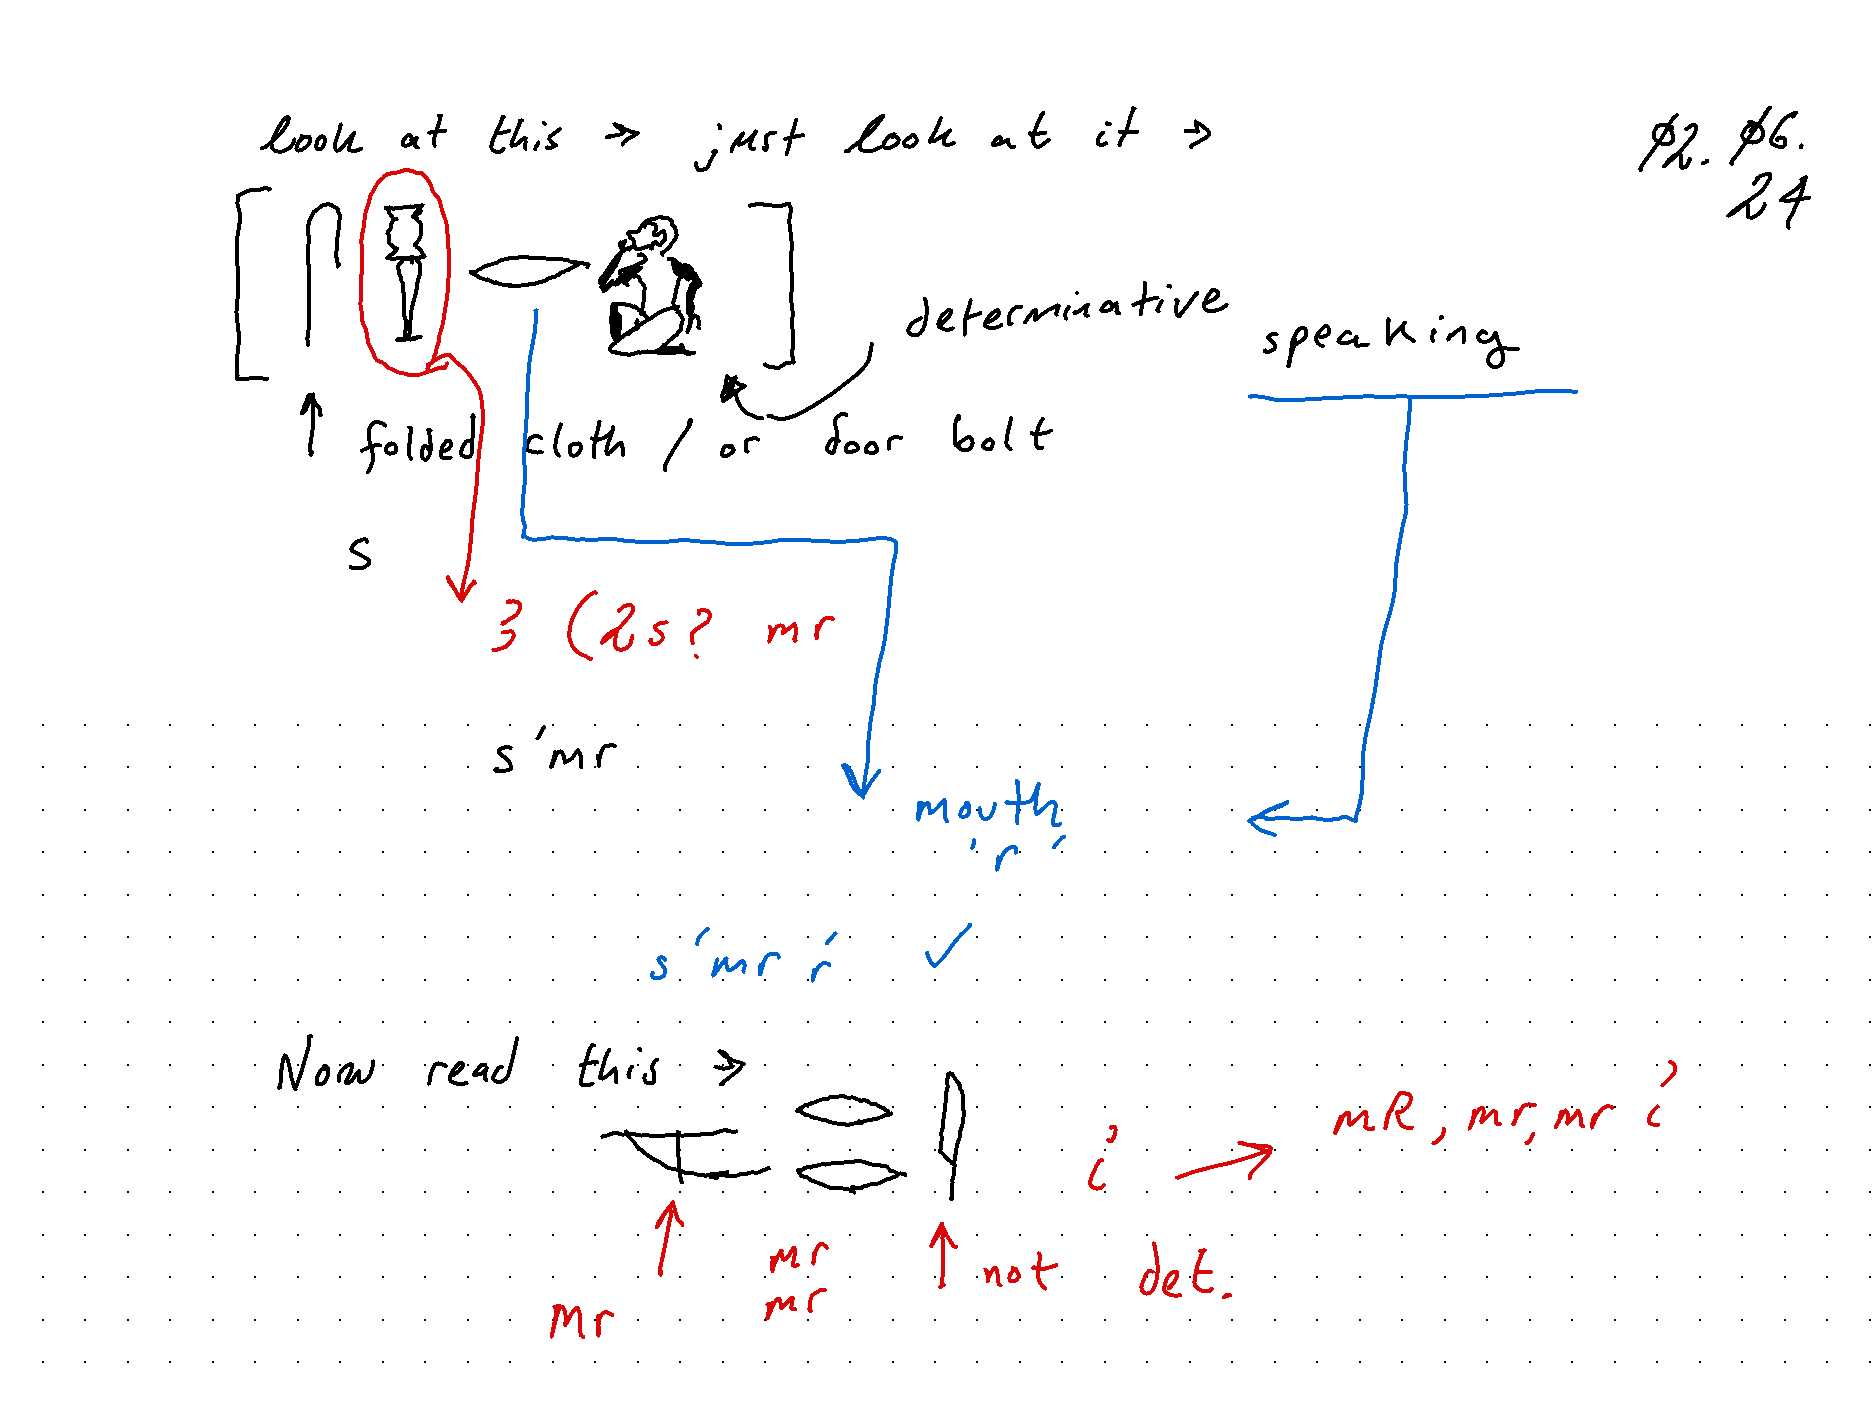 look at this → just look at it →
Ø2. Ø6.
24
determinative
speaking
↑ folded cloth / or door bolt
s
3 (2s? mr
s'mr
mouth
'r'
s'mr ŕ ✓
Now read this →
i → mR, mr, mr i
mr
mr
mr
not det.